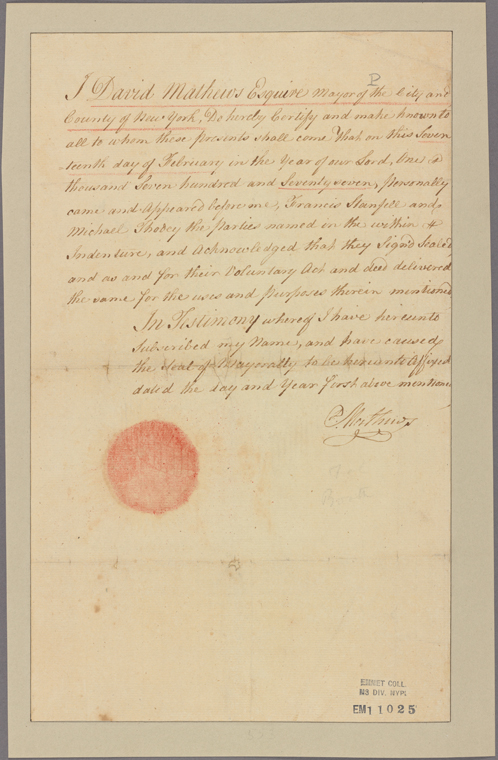 P
I David Mathews Esquire Mayor of the City and
County of New York, Do hereby Certify and make known to
all to whom these presents shall come That on this Seven
teenth day of February in the Year of our Lord, One
thousand Seven hundred and Seventy seven, personally
came and Appeared before me, Francis Stanfell and
Michael Thodey the parties named in the within
Indenture, and Acknowledged that they Sign'd Sealed
and as and for their Voluntary Act and deed delivered
the same for the uses and purposes therein mentioned
In Testimony whereof I have hereunto
Subscribed my Name, and have caused
the Seal of Mayoralty to be hereunto Affixed
dated the day and Year first above mentioned
D Mathews
EMMET COLL.
MS DIV. NYPL
EM11025